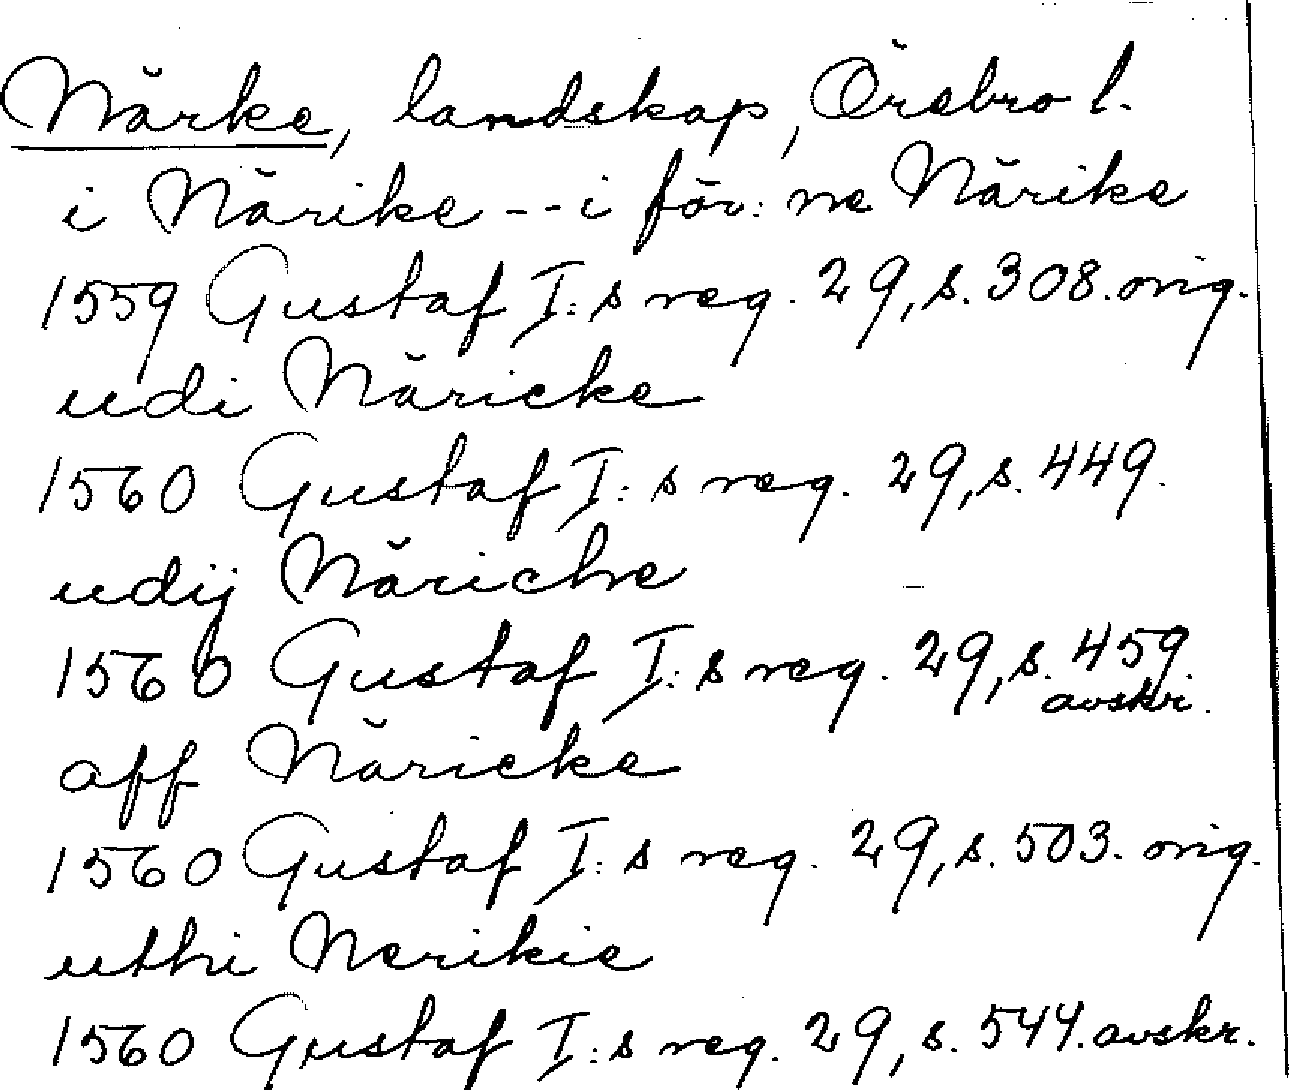 Närke, landskap, Örebro l.
i Närike -- i för: ne Närike
1559 Gustaf I: s reg. 29, s. 308. orig.
udi Näricke
1560 Gustaf I: s reg. 29, s. 449.
udij Näriche
1560 Gustaf I: s reg. 29, s. 459.
avskr.
aff Näricke
1560 Gustaf I: s reg. 29, s. 503. orig.
uthi Nerikie
1560 Gustaf I: s reg. 29, s. 544. avskr.